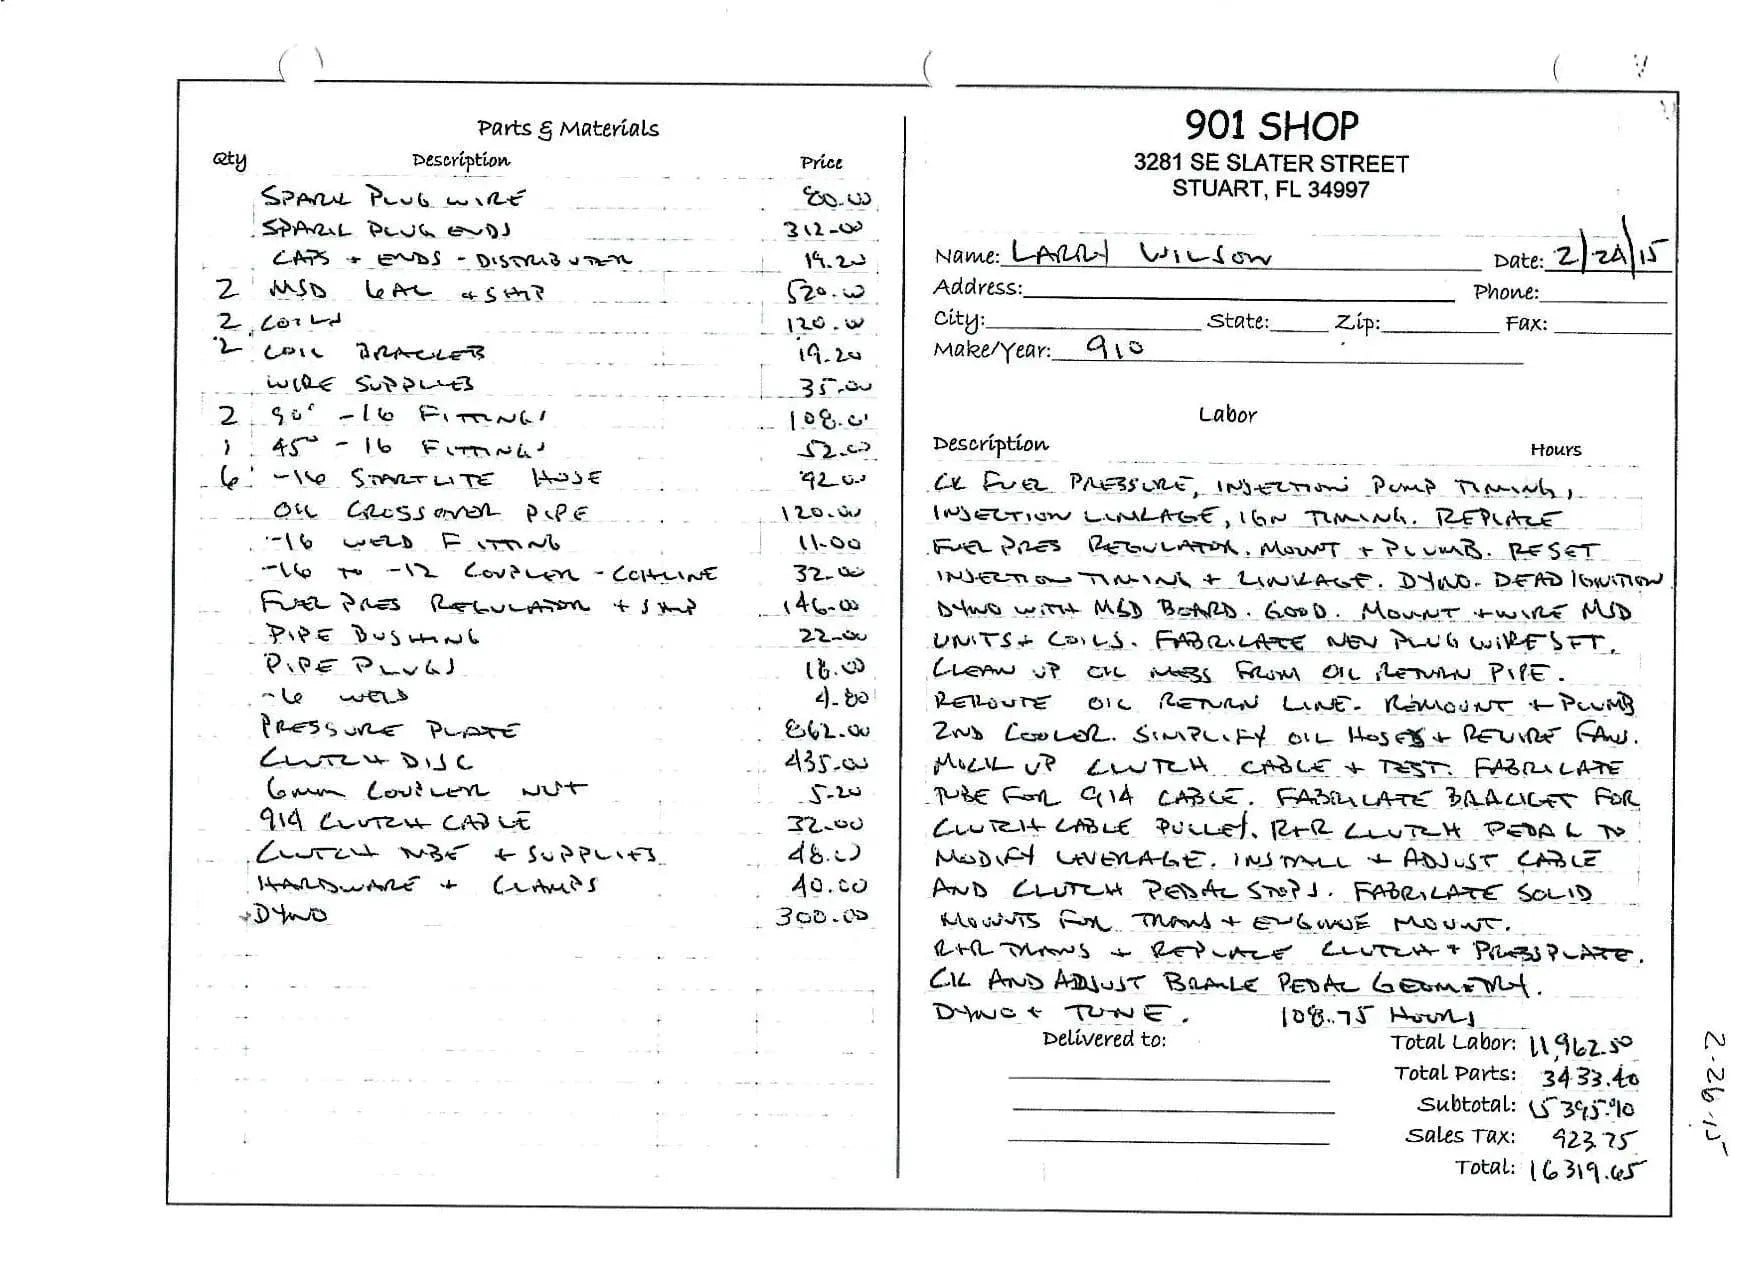 Parts & Materials
Qty Description Price
SPARK PLUG WIRE 80.00
SPARK PLUG ENDS 312-00
CAPS + ENDS - DISTRIBUTER 19.20
2 MSD 6AL + SHIP 520.00
2 COILS 120.00
2 COIL BRACKETS 19.20
WIRE SUPPLIES 35.00
2 90° -16 FITTINGS 108.00
1 45° -16 FITTINGS 52.00
6' -16 STARTLITE HOSE 92.00
OIL CROSSOVER PIPE 120.00
-16 WELD FITTING 11.00
-16 TO -12 COUPLER - COHLINE 32.00
FUEL PRES REGULATOR + SHIP 146.00
PIPE BUSHING 22.00
PIPE PLUGS 18.00
-6 WELD 4.80
PRESSURE PLATE 862.00
CLUTCH DISC 435.00
6mm COUPLER NUT 5.20
914 CLUTCH CABLE 32.00
CLUTCH TUBE + SUPPLIES 48.00
HARDWARE + CLAMPS 40.00
DYNO 300.00
901 SHOP
3281 SE SLATER STREET
STUART, FL 34997
Name: LARRY WILSON Date: 2/24/15
Address: Phone:
City: State: Zip: Fax:
Make/Year: 910
Labor
Description Hours
CK FUEL PRESSURE, INJECTION PUMP TIMING,
INJECTION LINKAGE, IGN TIMING. REPLACE
FUEL PRES REGULATOR. MOUNT + PLUMB. RESET
INJECTION TIMING + LINKAGE. DYNO. DEAD IGNITION
DYNO WITH MSD BOARD. GOOD. MOUNT + WIRE MSD
UNITS + COILS. FABRICATE NEW PLUG WIRE SET.
CLEAN UP OIL MESS FROM OIL RETURN PIPE.
REROUTE OIL RETURN LINE. REMOUNT + PLUMB
2ND COOLER. SIMPLIFY OIL HOSES + REWIRE FAN.
MOCK UP CLUTCH CABLE + TEST. FABRICATE
TUBE FOR 914 CABLE. FABRICATE BRACKET FOR
CLUTCH CABLE PULLEY. R+R CLUTCH PEDAL TO
MODIFY LEVERAGE. INSTALL + ADJUST CABLE
AND CLUTCH PEDAL STOPS. FABRICATE SOLID
MOUNTS FOR TRANS + ENGINE MOUNT.
R+R TRANS + REPLACE CLUTCH + PRESSPLATE.
CK AND ADJUST BRAKE PEDAL GEOMETRY.
DYNO + TUNE. 108.75 HOURS
Delivered to:
Total Labor: 11,962.50
Total Parts: 3433.40
Subtotal: 15395.90
Sales Tax: 923.75
Total: 16319.65
2-26-15